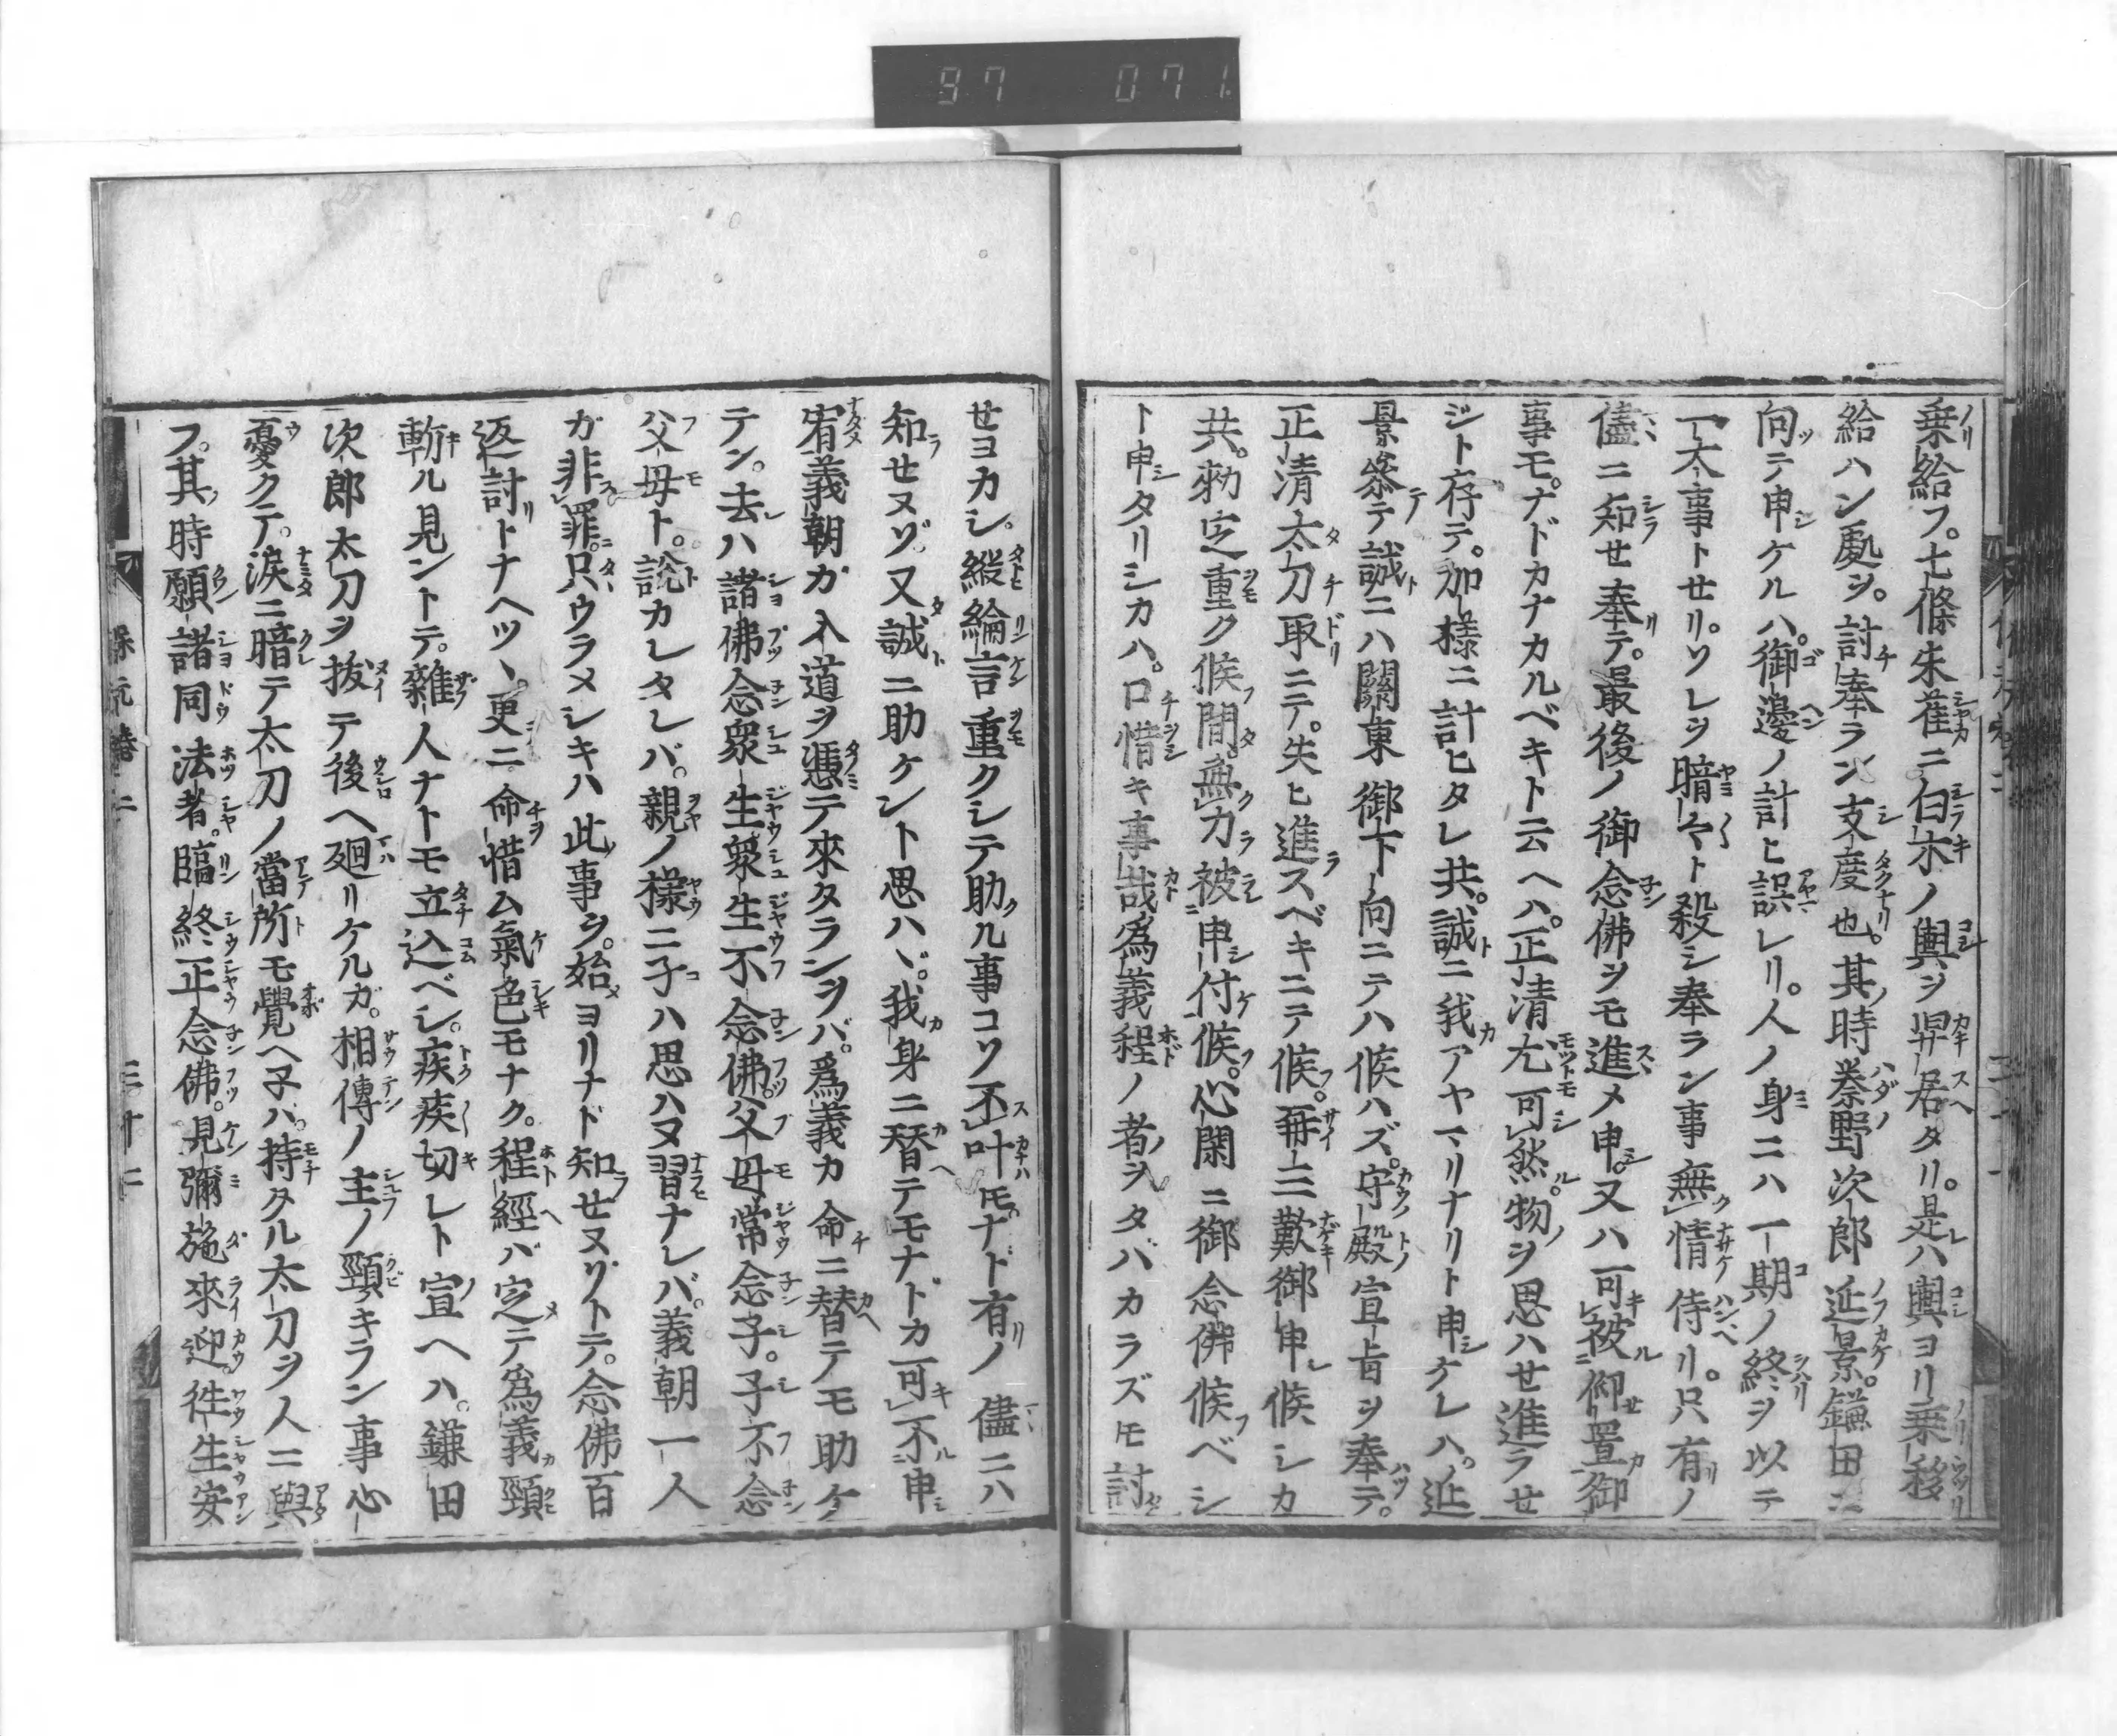 97 071
乗給フ。七條朱雀ニ白木ノ輿ヲ舁居タリ。是ハ輿ヨリ乗移
給ハン處ヲ。討奉ラン支度也。其時𣘺野次郎延景。鎌田ニ
向テ申ケルハ。御邊ノ計ヒ誤レリ。人ノ身ニハ一期ノ終ヲ以テ
一大事トせリ。ソレヲ暗々ト殺シ奉ラン事無情侍リ。只有ノ
儘ニ知せ奉テ。最後ノ御念佛ヲモ進メ申。又ハ可被仰置御
事モ。ナドカナカルベキト云ヘハ。正清尤可然。物ヲ思ハせ進ラせ
ジト存テ。加樣ニ計ヒタレ共。誠ニ我アヤマリナリト申ケレハ。延
景叅テ誠ニハ關東御下向ニテハ候ハズ。守殿宣旨ヲ奉テ。
正清太刀取ニテ。失ヒ進スベキニテ候。再三歎御申候シカ
共。勅定重ク候間。無力被申付候。心閑ニ御念佛候ベシ
ト申タリシカハ。口惜キ事哉爲義程ノ者ヲタバカラズ𪜈討
せヨカシ。縦綸言重クシテ助ル事コソ不叶𪜈。ナド有ノ儘ニハ
知せヌゾ。又誠ニ助ケント思ハヽ。我身ニ替テモナドカ可不申
宥義朝カ入道ヲ憑テ來タランヲバ。爲義カ命ニ替テモ助ケ
テン。去ハ諸佛念衆生衆生不念佛。父母常念子。子不念
父母ト。說カレタレバ。親ノ樣ニ子ハ思ハヌ習ナレバ。義朝一人
ガ非罪。只ウラメシキハ此事ヲ。始ヨリナド知せヌゾトテ。念佛百
返計トナヘツヽ。更ニ命惜ム氣色モナク。程經バ定テ爲義カ頸
斬ル見ントテ。雜人ナトモ立込ベシ。疾疾切レト宣ヘハ。鎌田
次郎太刀ヲ拔テ後ヘ廻リケルガ。相傳ノ主ノ頸キラン事心
憂クテ。淚ニ暗テ太刀ノ當所モ覺ヘ子ハ。持タル太刀ヲ人ニ與
フ。其時願諸同法者。臨終正念佛。見彌施來迎徃生安
保元 卷二 三十二